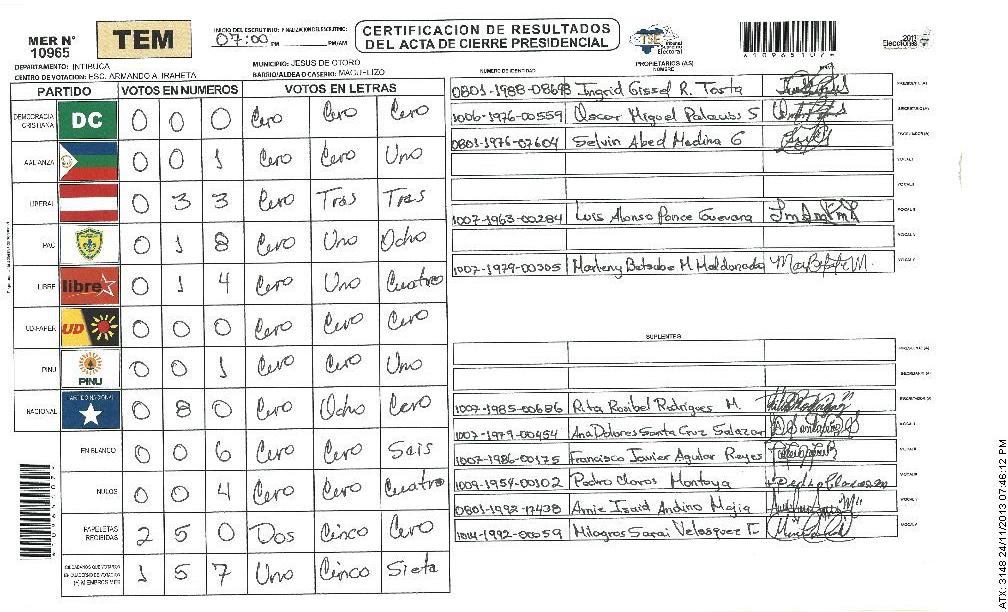 MER N° 10965
TEM
INICIO DEL ESCRUTINIO: FINALIZACION DEL ESCRUTINIO:
07:00 PM PM/AM
CERTIFICACION DE RESULTADOS
DEL ACTA DE CIERRE PRESIDENCIAL
TSE Tribunal Supremo Electoral
2013 Elecciones
DEPARTAMENTO: INTIBUCA
MUNICIPIO: JESUS DE OTORO
CENTRO DE VOTACION: ESC. ARMANDO A. IRAHETA
BARRIO/ALDEA O CASERIO: MAGUELIZO
PARTIDO VOTOS EN NUMEROS VOTOS EN LETRAS
DEMOCRACIA CRISTIANA DC 0 0 0 Cero Cero Cero
ALIANZA 0 0 1 Cero Cero Uno
LIBERAL 0 3 3 Cero Tres Tres
PAC 0 1 8 Cero Uno Ocho
LIBRE libre 0 1 4 Cero Uno Cuatro
UD-FAPER UD 0 0 0 Cero Cero Cero
PINU PINU 0 0 1 Cero Cero Uno
NACIONAL PARTIDO NACIONAL 0 8 0 Cero Ocho Cero
EN BLANCO 0 0 6 Cero Cero Seis
NULOS 0 0 4 Cero Cero Cuatro
PAPELETAS RECIBIDAS 2 5 0 Dos Cinco Cero
CIUDADANOS QUE VOTARON EN CUADERNO DE VOTACION (+) MIEMBROS MER 1 5 7 Uno Cinco Siete
PROPIETARIOS (AS)
NUMERO DE IDENTIDAD NOMBRE FIRMA
0801-1988-08698 Ingrid Gissel R. Tosta PRESIDENTE(A)
1006-1976-00559 Oscar Miguel Palacios S SECRETARIO(A)
0801-1976-07604 Selvin Abed Medina G ESCRUTADOR(A)
VOCAL I
VOCAL II
1007-1963-00284 Luis Alonso Ponce Guevara VOCAL III
VOCAL IV
1007-1979-00305 Marleny Betsabe M. Maldonado VOCAL V
SUPLENTES
PRESIDENTE(A)
SECRETARIO(A)
1007-1985-00686 Rita Rosibel Rodrigues M. ESCRUTADOR(A)
1007-1979-00454 Ana Dolores Santa Cruz Salazar VOCAL I
1007-1986-00175 Francisco Javier Aguilar Reyes VOCAL II
1009-1954-00102 Pedro Claros Montoya
0801-1992-17438 Arnie Izaid Andino Mejia
1014-1992-00059 Milagros Sarai Velasquez VOCAL V
ATX: 3148 24/11/2013 07:46:12 PM